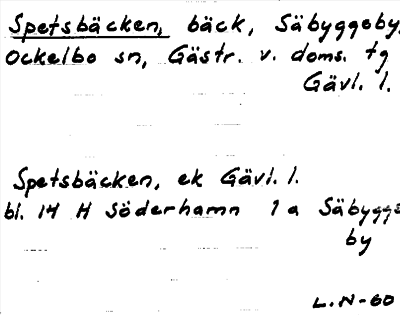 Spetsbäcken, bäck, Säbyggeby,
Ockelbo sn, Gästr. v. doms. tg
Gävl. l.
Spetsbäcken, ek Gävl. l.
bl. 14 H Söderhamn 1 a Säbygge
by
L.N-60